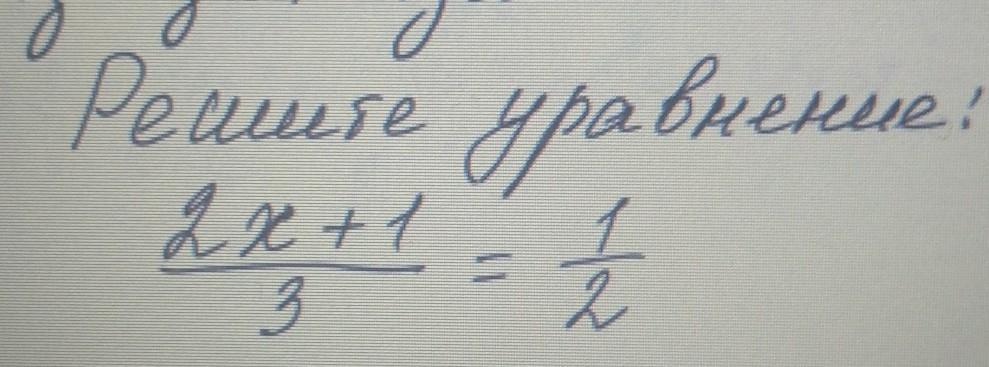 Решите уравнение:
2x + 1 / 3 = 1 / 2